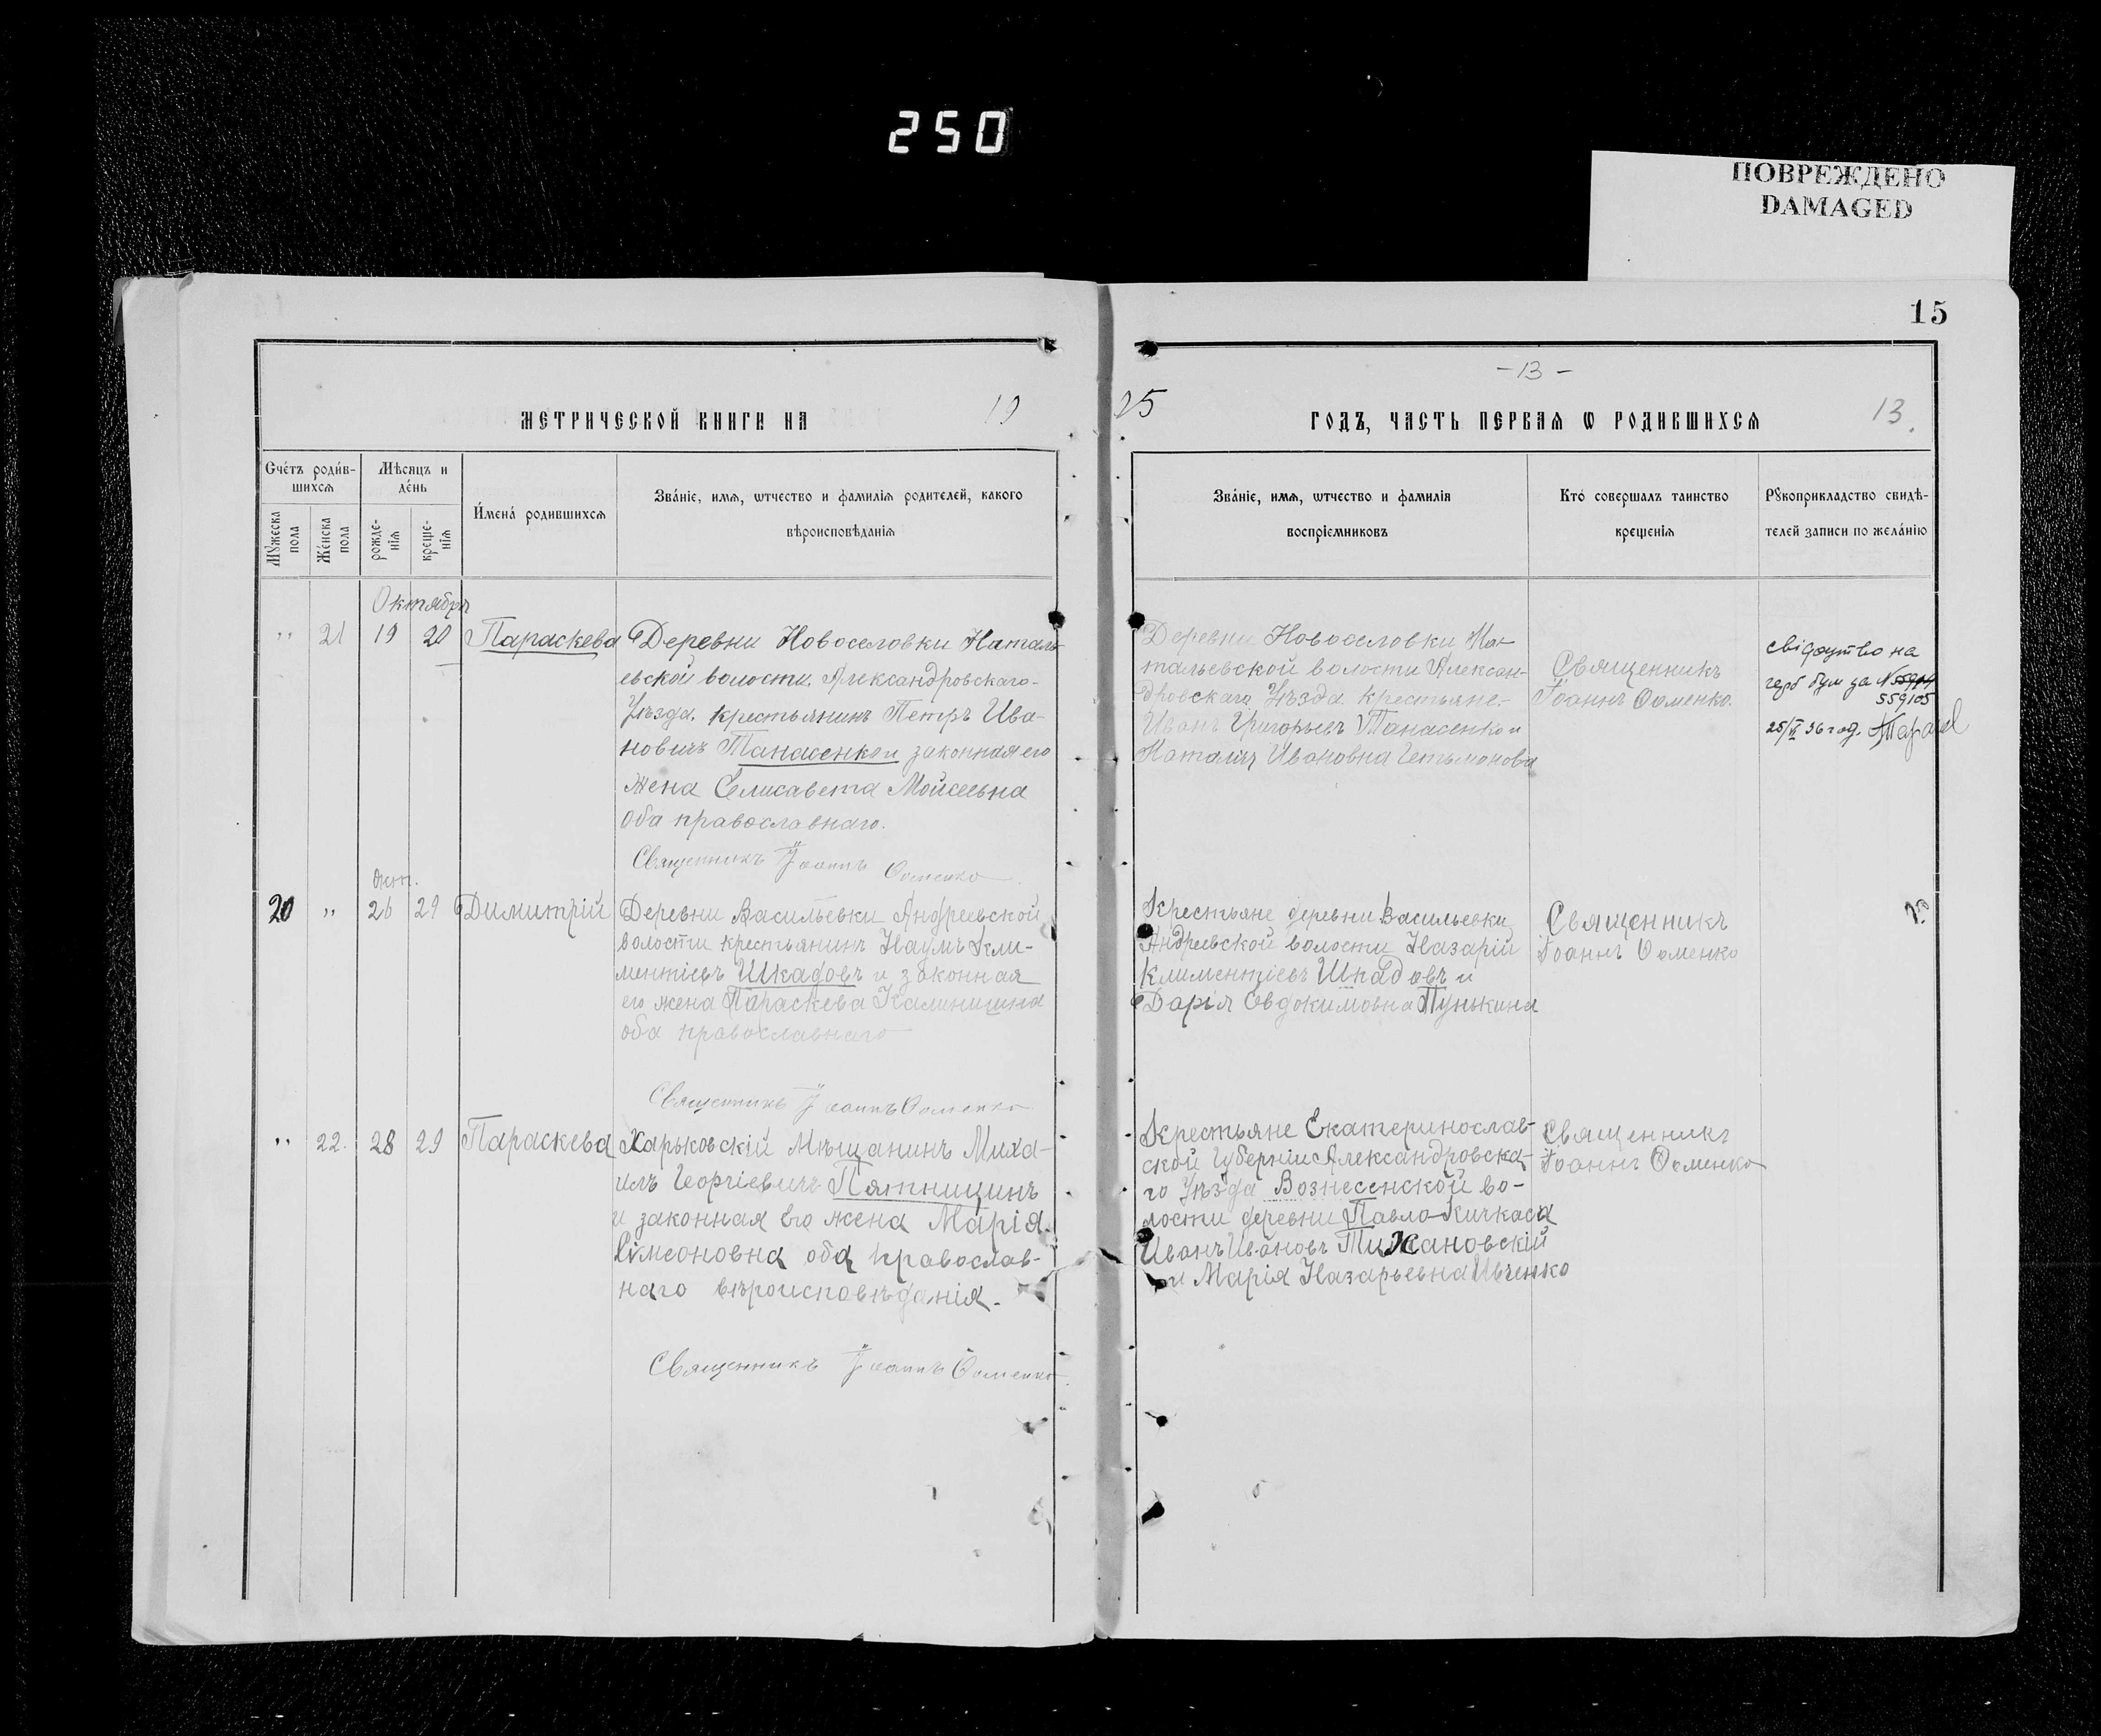 250
ПОВРЕЖДЕНО
DAMAGED
15
- 13 -
МЕТРИЧЕСКОЙ КНИГИ НА 19
15 ГОДЪ, ЧАСТЬ ПЕРВАЯ Ѡ РОДИВШИХСЯ 13.
Счётъ родив-
шихся
Мужеска
пола
Женска
пола
Мѣсяцъ и
день
рожде-
нія
креще-
нія
Имена родившихся
Званіе, имя, ѡтчество и фамилія родителей, какого
вѣроисповѣданія
Званіе, имя, ѡтчество и фамилія
воспріемниковъ
Кто совершалъ таинство
крещенія
Рукоприкладство свидѣ-
телей записи по желанію
Октября
" 21 19 20 Параскева
Деревни Новоселовки Наталь-
евской волости, Александровскаго
Уѣзда, крестьянинъ Петръ Ива-
новичъ Танасенко и законная его
жена Елисавета Мойсеевна
оба православнаго.
Священникъ Іоаннъ
Деревни Новоселовки На-
тальевской волости Алексан-
дровскаго Уѣзда крестьяне
Иванъ Григорьевъ Танасенко и
Наталія Ивановна
Священникъ
Іоаннъ
свідоцтво на
герб бум за №
559105
25/VI 36 год.
Окт.
20 " 26 29 Димитрій
Деревни Васильевки Андреевской
волости крестьянинъ Наумъ Кли-
ментіевъ Шкадовъ и законная
его жена Параскева
оба православнаго
Священникъ Іоаннъ
Крестьяне деревни Васильевки
Андреевской волости Назарій
Климентіевъ Шкадовъ и
Дарія Овдокимовна Пунькина
Священникъ
Іоаннъ
" 22. 28 29 Параскева
Харьковскій Мѣщанинъ Миха-
илъ Георгіевичъ Пятницинъ
и законная его жена Марія
Симеоновна оба православ-
наго вѣроисповѣданія.
Священникъ Іоаннъ
Крестьяне Екатеринослав-
ской Губерніи Александровска-
го Уѣзда Вознесенской во-
лости деревни Павло-Кичкаса
Иванъ Ивановъ Тижановскій
и Марія Назарьевна Ивченко
Священникъ
Іоаннъ